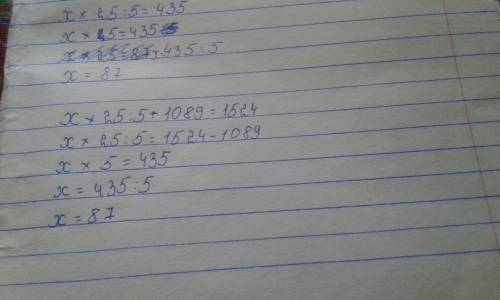 x × 25 : 5 = 435
x × 5 = 435
435 : 5
x = 87
x × 25 : 5 + 1089 = 1524
x × 25 : 5 = 1524 - 1089
x × 5 = 435
x = 435 : 5
x = 87